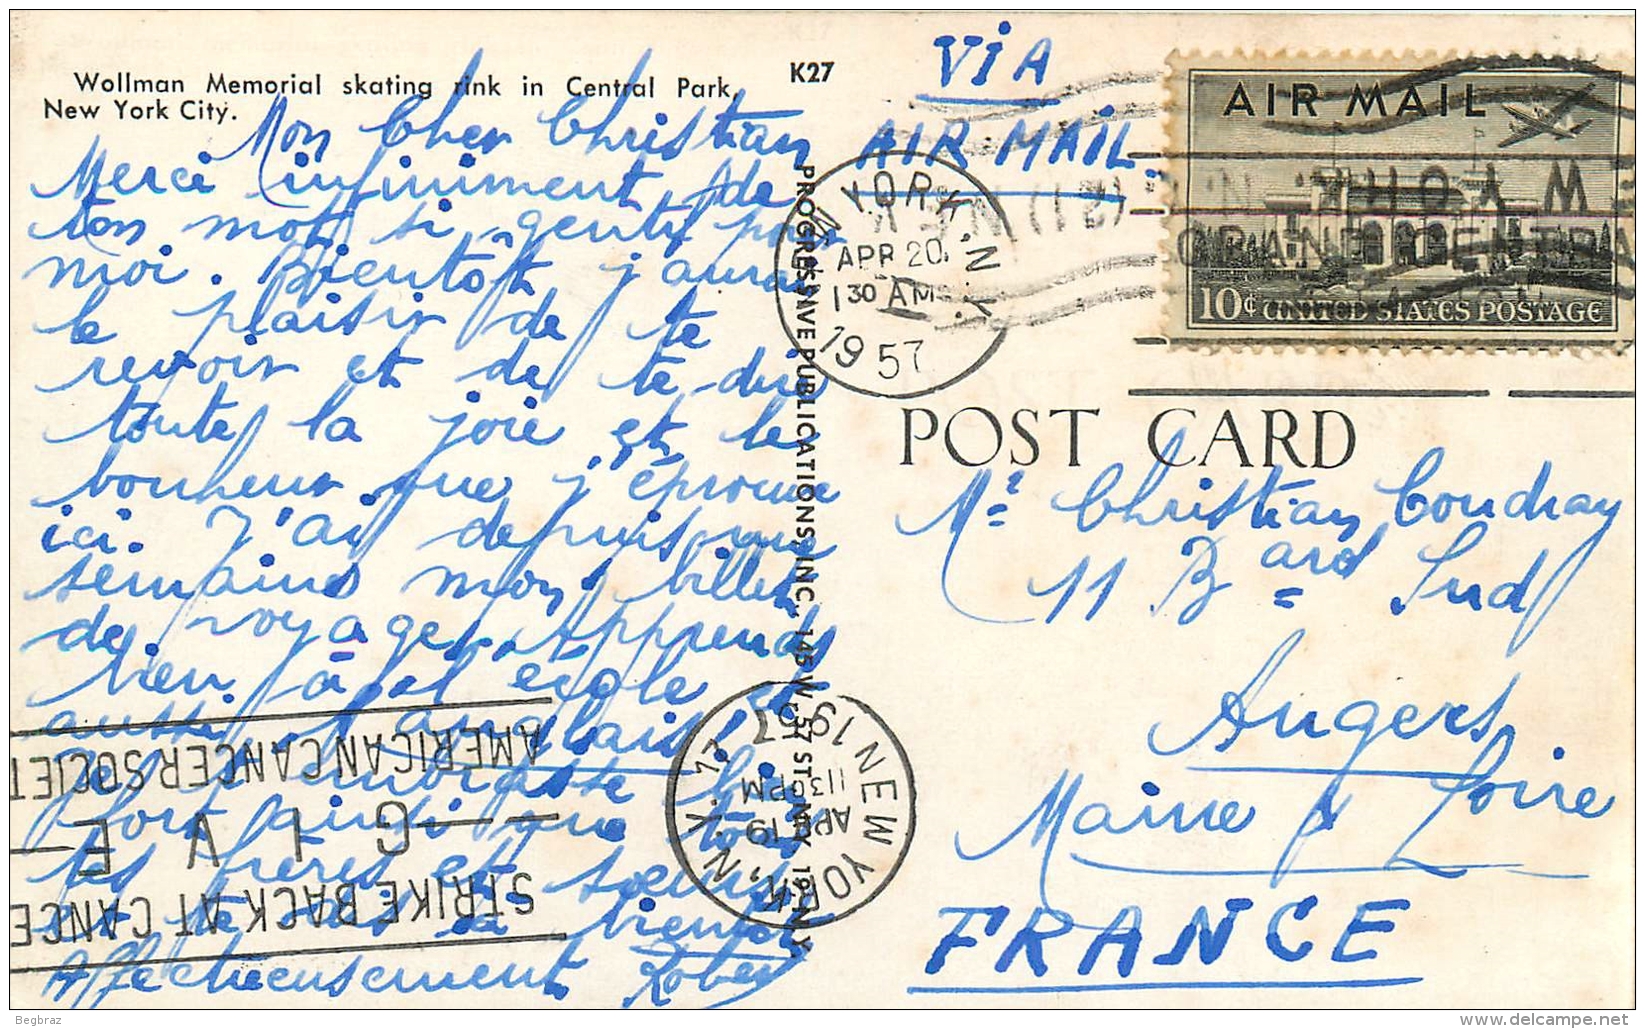 Wollman Memorial skating rink in Central Park,
New York City.
K27
Mon Cher Christian
Merci infiniment de
ton mot si gentil pour
moi. Bientôt j'aurai
le plaisir de te
revoir et de te dire
toute la joie et le
bonheur que j'éprouve
ici. J'ai depuis une
semaine mon billet
de voyage. Apprends
bien à l'école et
aussi l'anglais!
Je t'embrasse bien
fort ainsi que tous
tes frères et soeurs
et te dis à bientôt
Affectueusement Robert
PROGRESSIVE PUBLICATIONS, INC., 145 W. 57 ST. N.Y. 19, N.Y.
ViA
AIR MAiL.
NEW YORK, N.Y.
APR 20
1 30 AM
1957
AIR MAIL
10¢ UNITED STATES POSTAGE
POST CARD
Mr Christian Coudray
11 Bard Sud
Angers
Maine & Loire
FRANCE
NEW YORK, N.Y.
APR 19
1130 PM
1957
STRIKE BACK AT CANCE
GIVE
AMERICAN CANCER SOCIET
Begbraz
www.delcampe.net